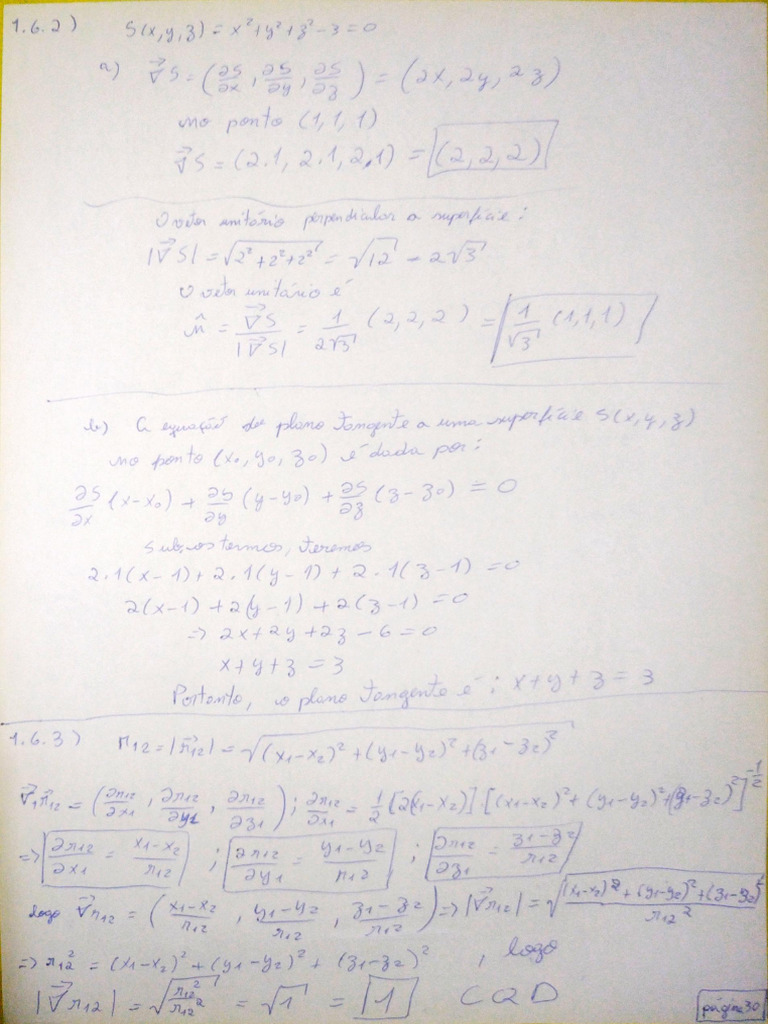 1.6.2) S(x,y,z) = x² + y² + z² - 3 = 0
a) ∇⃗S = (∂S/∂x, ∂S/∂y, ∂S/∂z) = (2x, 2y, 2z)
no ponto (1,1,1)
∇⃗S = (2.1, 2.1, 2.1) = (2,2,2)
O vetor unitário perpendicular a superfície:
|∇⃗S| = √(2²+2²+2²) = √12 = 2√3
O vetor unitário é
n̂ = ∇⃗S/|∇⃗S| = 1/(2√3) (2,2,2) = 1/√3 (1,1,1)
b) A equação do plano tangente a uma superfície S(x,y,z)
no ponto (x₀,y₀,z₀) é dada por:
∂S/∂x (x-x₀) + ∂S/∂y (y-y₀) + ∂S/∂z (z-z₀) = 0
Sub. os termos, teremos
2.1(x-1) + 2.1(y-1) + 2.1(z-1) = 0
2(x-1) + 2(y-1) + 2(z-1) = 0
⇒ 2x+2y+2z-6=0
x+y+z=3
Portanto, o plano tangente é: x+y+z=3
1.6.3) r₁₂ = |r⃗₁₂| = √((x₁-x₂)² + (y₁-y₂)² + (z₁-z₂)²)
∇⃗₁r⃗₁₂ = (∂r₁₂/∂x₁, ∂r₁₂/∂y₁, ∂r₁₂/∂z₁); ∂r₁₂/∂x₁ = 1/2 [2(x₁-x₂)].[(x₁-x₂)² + (y₁-y₂)² + (z₁-z₂)²]^(-1/2)
⇒ ∂r₁₂/∂x₁ = (x₁-x₂)/r₁₂ ; ∂r₁₂/∂y₁ = (y₁-y₂)/r₁₂ ; ∂r₁₂/∂z₁ = (z₁-z₂)/r₁₂
logo ∇⃗r₁₂ = ((x₁-x₂)/r₁₂, (y₁-y₂)/r₁₂, (z₁-z₂)/r₁₂) ⇒ |∇⃗r₁₂| = √(((x₁-x₂)² + (y₁-y₂)² + (z₁-z₂)²)/r₁₂²)
⇒ r₁₂² = (x₁-x₂)² + (y₁-y₂)² + (z₁-z₂)² , logo
|∇⃗r₁₂| = √(r₁₂²/r₁₂²) = √1 = 1 CQD
página 30